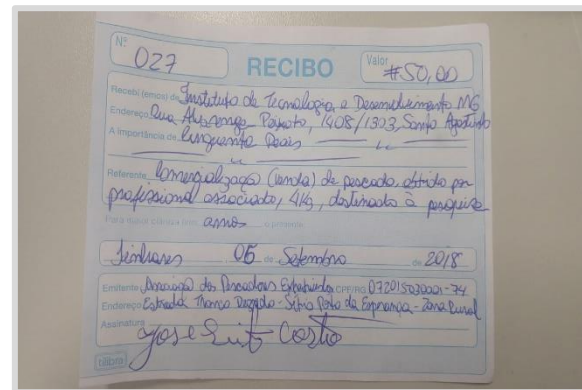 Nº 027 RECIBO Valor #50,00
Recebi (emos) de Instituto de Tecnologia e Desenvolvimento MG
Endereço Rua Alvarenga Peixoto, 1408/1303, Santo Agostinho
A Importância de Cinquenta Reais
Referente Comercialização (venda) de pescado obtido por
profissional associado, 4kg, destinado à pesquisa
Para maior clareza firm amos o presente
Linhares 05 de Setembro de 2018
Emitente Associação dos Pescadores CPF/RG 072015030001-74
Endereço Estrada - Sítio Porto da Esperança - Zona Rural
Assinatura José
tilibra